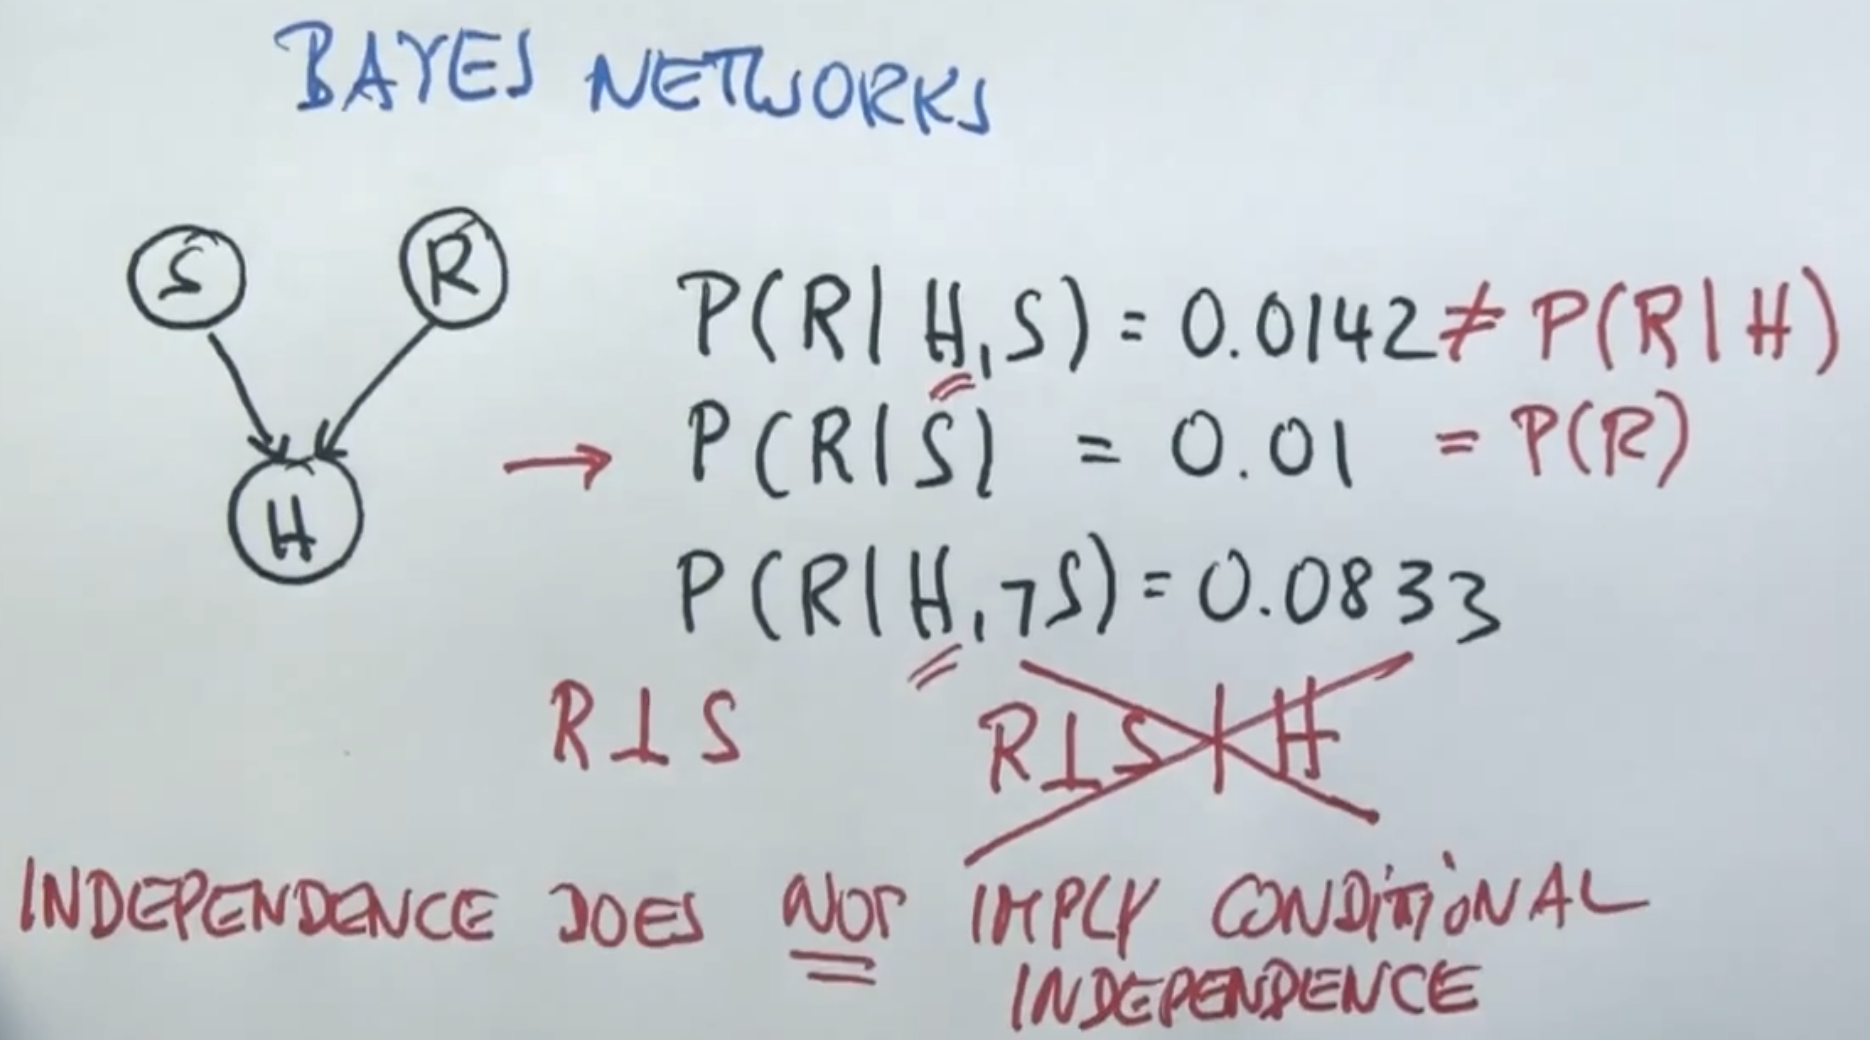 BAYES NETWORKS
S
R
H
P(R|H,S) = 0.0142 ≠ P(R|H)
P(R|S) = 0.01 = P(R)
P(R|H,¬S) = 0.0833
R⊥S R⊥S|H
INDEPENDENCE DOES NOT IMPLY CONDITIONAL
INDEPENDENCE